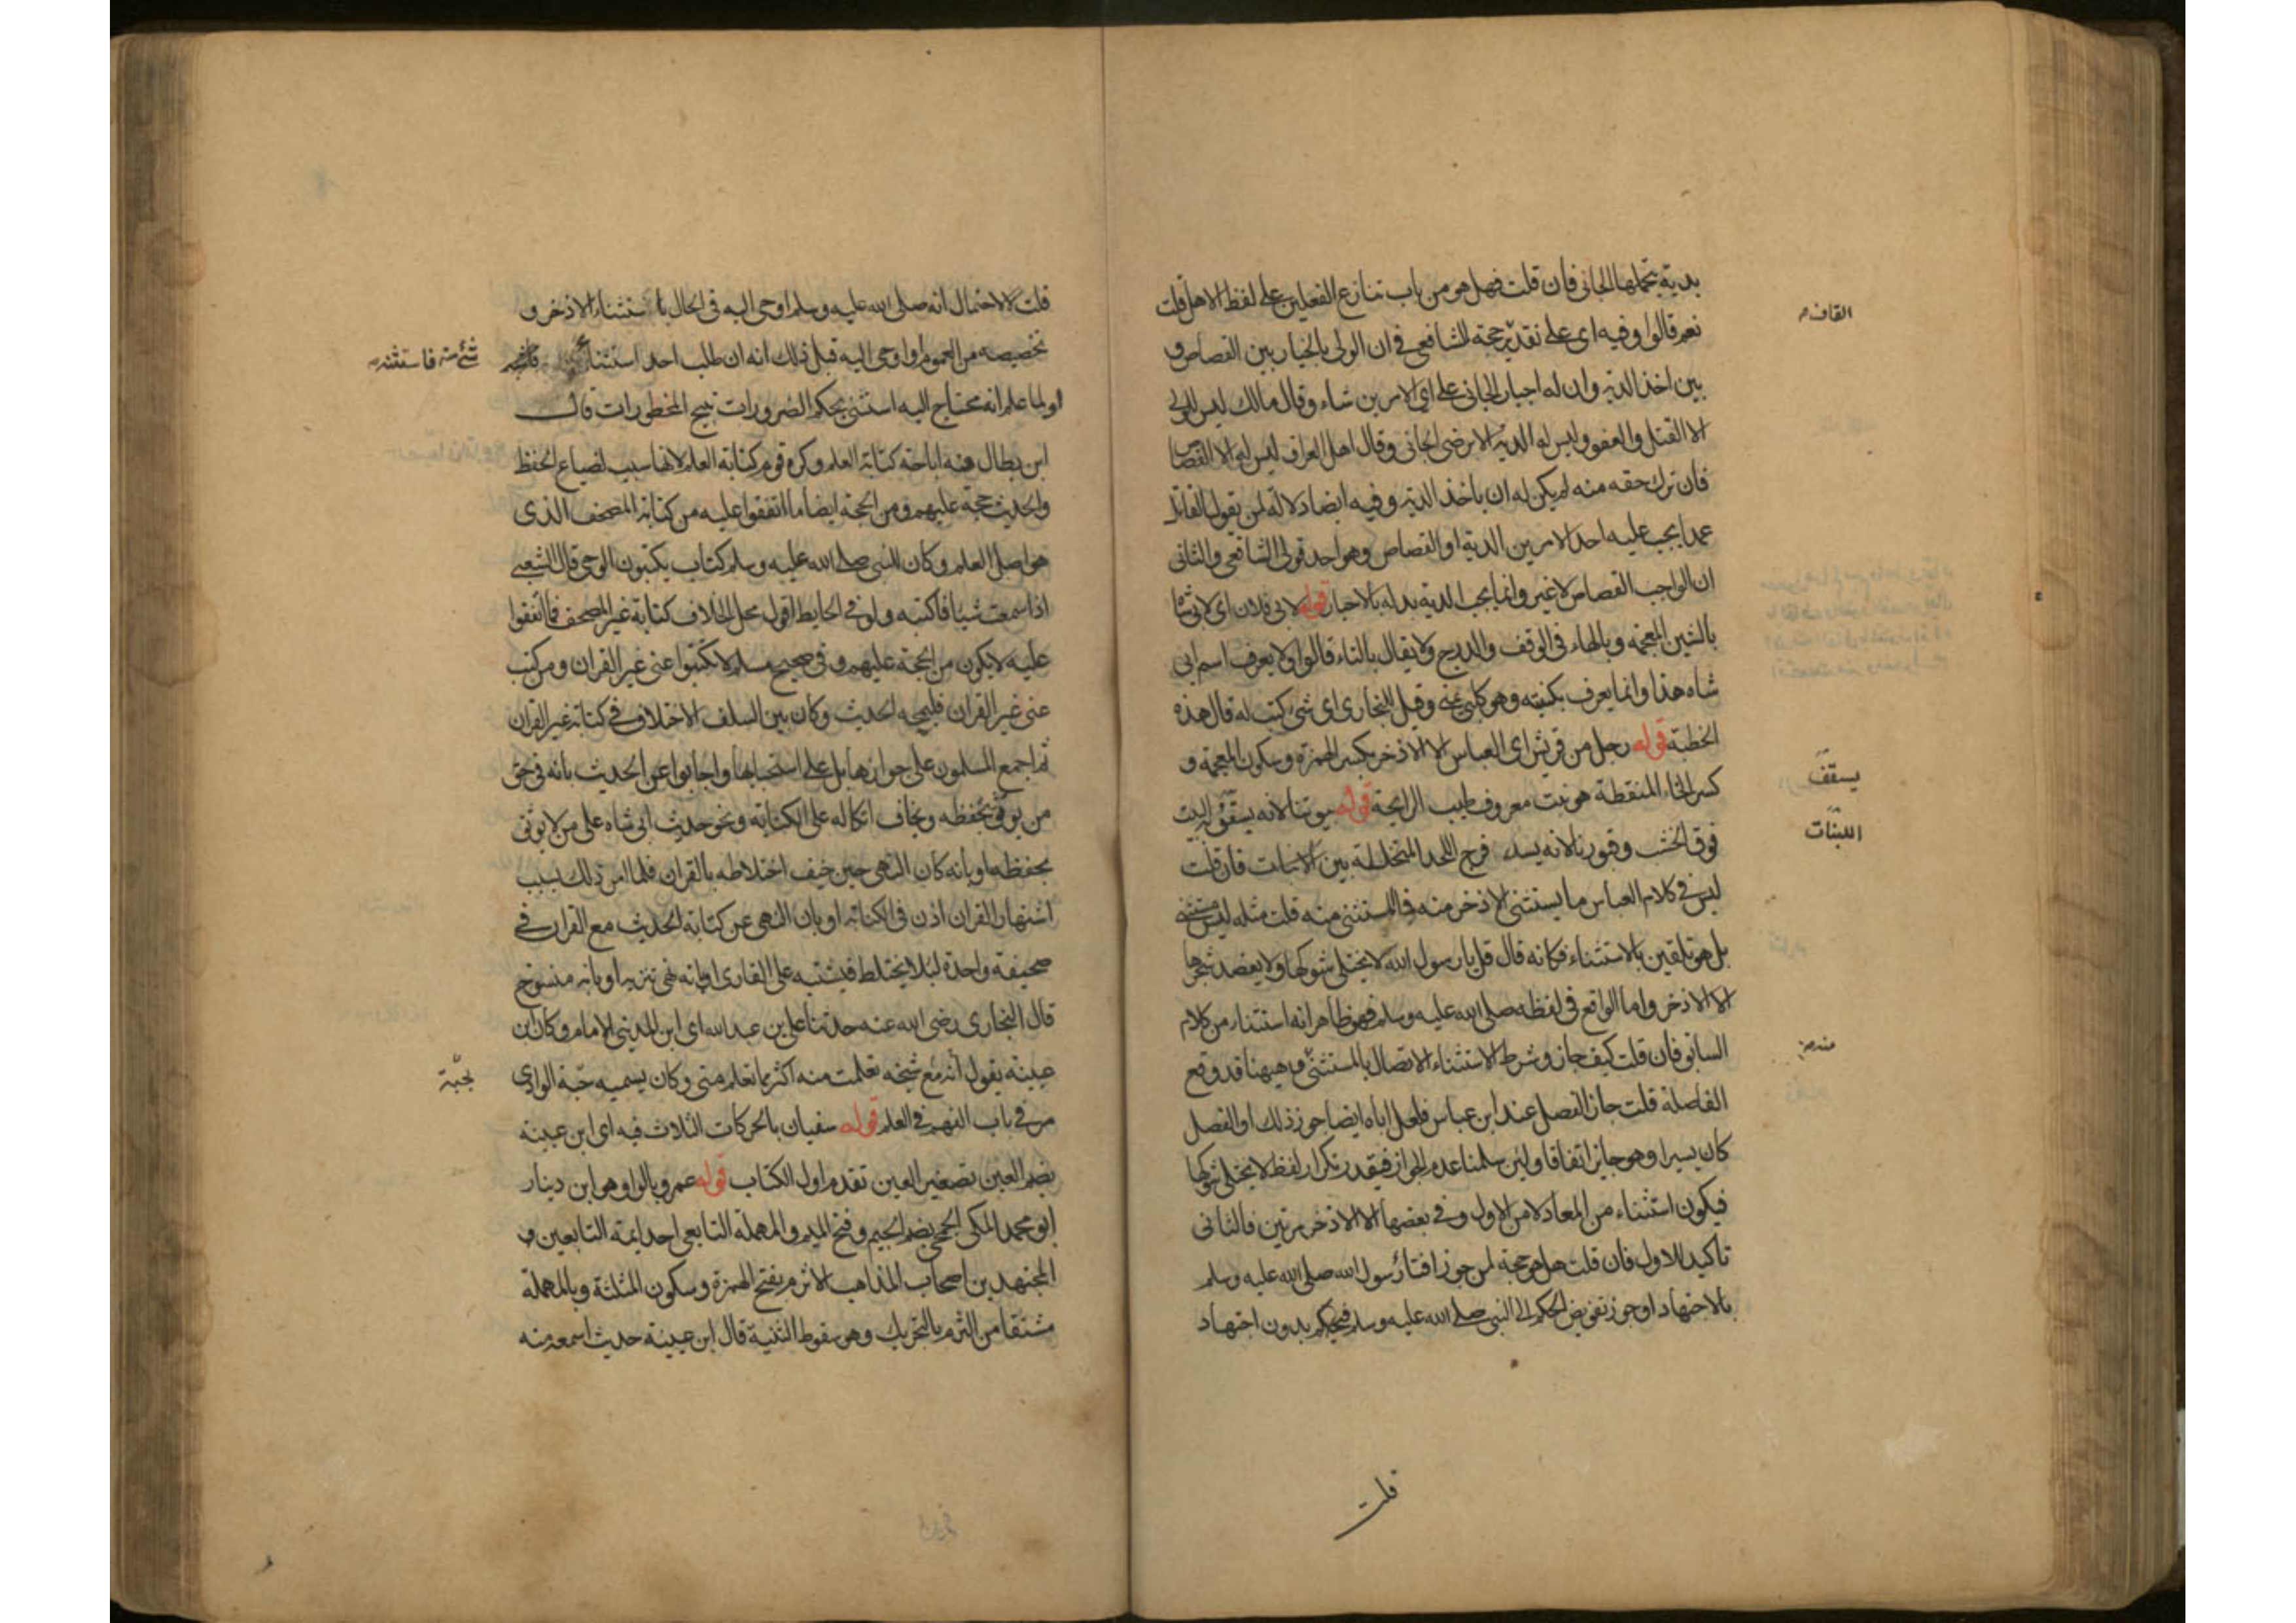 بدية يتحملها الجاني فان قلت فهل هو من باب تنازع الفعلين على لفظ الاهل قلت
نعم قالوا وفيه اى على تقدير حجة للشافعي في ان الولى بالخيار بين القصاص و
بين اخذ الدية وان له اجبار الجانى على اي الامرين شاء وقال مالك ليس للولى
الا القتل والعفو وليس له الدية الا برضى الجانى وقال اهل العراق ليس له الا القصاص
فان ترك حقه منه لم يكن له ان ياخذ الدية وفيه ايضا دلالة لمن يقول القاتل
عمدا يجب عليه احد الامرين الدية او القصاص وهو احد قولى الشافعي والثانى
ان الواجب القصاص لا غير وانما يجب الدية بدله بالاختيار قوله لابى فلان اى لابى شاه
بالشين المعجمة وبالهاء فى الوقف والدرج ولا يقال بالتاء قالوا ولا يعرف اسم ابى
شاه هذا وانما يعرف بكنيته وهو كلبى يمنى وقيل للبخارى اى شئ كتب له قال هذه
الخطبة قوله رجل من قريش اى العباس الا الاذخر بكسر الهمزة وسكون المعجمة و
كسر الخاء المنقطة هو نبت معروف طيب الرايحة قوله بيوتنا لانه يسقف به البيت
فوق الخشب وقبورنا لانه يسد به فرج اللحد المتخللة بين اللبنات فان قلت
ليس فى كلام العباس ما يستثنى الاذخر منه فما المستثنى منه قلت مثله ليس مستثنى
بل هو تلقين بالاستثناء فكانه قال قل يا رسول الله لا يختلى شوكها ولا يعضد شجرها
الا الاذخر واما الواقع فى لفظه صلى الله عليه وسلم فهو ظاهر انه استثناء من كلام
السابق فان قلت كيف جاز وشرط الاستثناء الاتصال بالمستثنى وههنا قد وقع
الفاصلة قلت جاز الفصل عند ابن عباس فلعل اباه ايضا جوز ذلك او الفصل
كان يسيرا وهو جايز اتفاقا ولين سلمنا عدم الجواز فيقدر تكرار لفظ لا يختلى شوكها
فيكون استثناء من المعاد لا من الاول وفي بعضها الا الاذخر مرتين فالثانى
تاكيد للاول فان قلت هل هو حجة لمن جوز افتاء رسول الله صلى الله عليه وسلم
بالاجتهاد او جوز تفويض الحكم الى النبي صلى الله عليه وسلم فيحكم بدون اجتهاد
القاف
يسقف
اللبنات
منه
قلت
قلت لا لاحتمال انه صلى الله عليه وسلم اوحى اليه فى الحال باستثناء الاذخر و
تخصيصه من العموم او اوحى اليه قبل ذلك انه ان طلب احد استثناء
او لما علم انه محتاج اليه استثنى بحكم الضرورات تبيح المحظورات قال
ابن بطال فيه اباحة كتابة العلم وكره قوم كتابة العلم لانها سبب لضياع الحفظ
والحديث حجة عليهم ومن الحجة ايضا ما اتفقوا عليه من كتابة المصحف الذى
هو اصل العلم وكان للنبى صلى الله عليه وسلم كتاب يكتبون الوحى قال الشعبى
اذا سمعت شيا فاكتبه ولو في الحايط اقول محل الخلاف كتابة غير المصحف فما اتفقوا
عليه لا يكون من الحجة عليهم وفى صحيح مسلم لا تكتبوا عنى غير القران ومن كتب
عنى غير القران فليمحه الحديث وكان بين السلف الاختلاف في كتابة غير القران
ثم اجمع المسلمون على جوازها بل على استحبابها واجابوا عن الحديث بانه فى حق
من يوثق بحفظه ويخاف اتكاله على الكتابة ونحو حديث ابى شاه على من لا يوثق
بحفظه او بانه كان النهى حين خيف اختلاطه بالقران فلما امن ذلك بسبب
اشتهار القران اذن فى الكتابة او بان النهى عن كتابة الحديث مع القران في
صحيفة واحدة ليلا يختلط فيشتبه على القارى او بانه نهى تنزيه او بانه منسوخ
قال البخارى رضى الله عنه حدثنا على بن عبد الله اى ابن المدينى الامام وكان ابن
عيينة يقول انه مع شيخه تعلمت منه اكثر مما تعلم منى وكان يسميه حية الوادى
مر فى باب الفهم في العلم قوله سفيان بالحركات الثلاث فيه اى ابن عيينة
بضم العين تصغير العين تقدم اول الكتاب قوله عمرو بالواو هو ابن دينار
ابو محمد المكى الجمحى بضم الجيم وفتح الميم والمهملة التابعى احد ايمة التابعين و
المجتهدين اصحاب المذاهب الاثرم بفتح الهمزة وسكون المثلثة وبالمهملة
مشتقا من الثرم بالتحريك وهو سقوط الثنية قال ابن عيينة حديث اسمعه منه
شئ منه فاستثنه
بحية